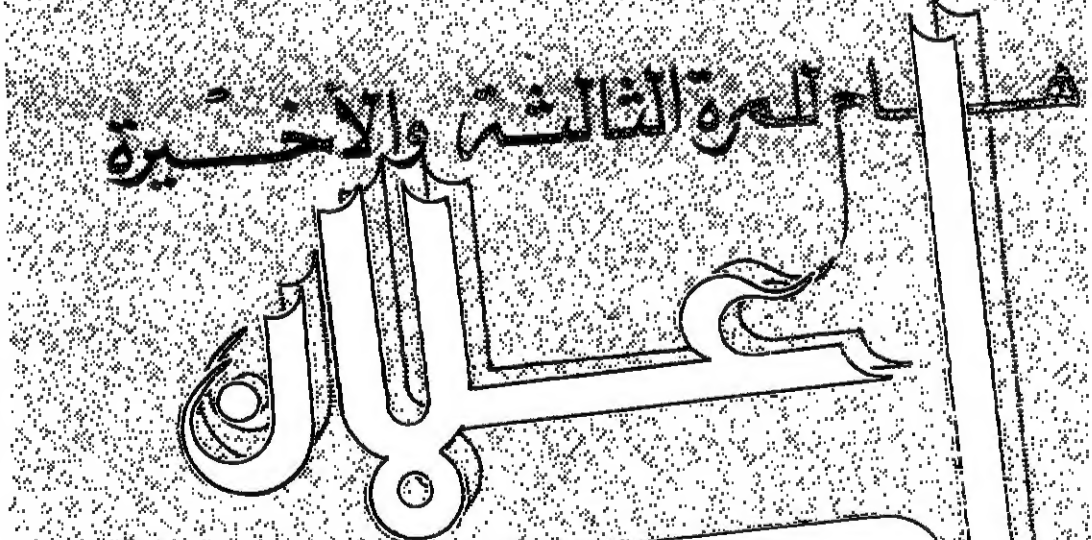 هــام للمرة الثالثة والأخيرة
إعلان